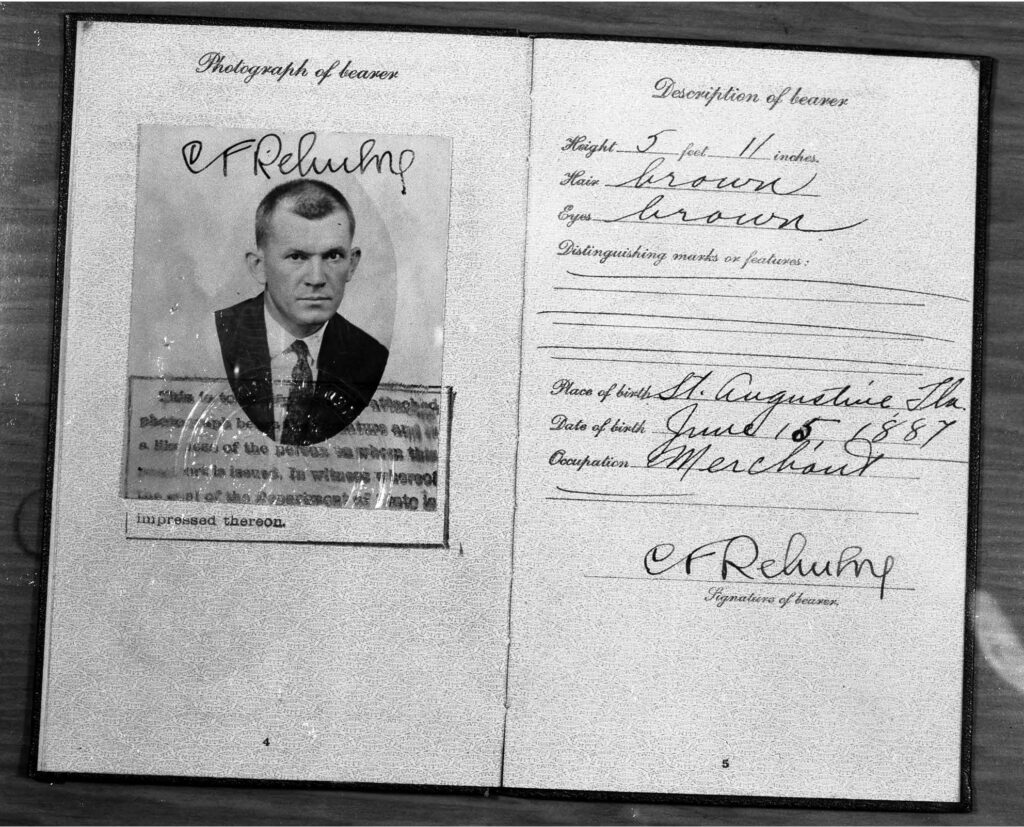 Photograph of bearer
C F
This is to attached
and
a likeness of the person to whom this
is issued. In witness whereof
the seal of the Department of State is
impressed thereon.
4
Description of bearer
Height 5 feet 11 inches.
Hair brown
Eyes brown
Distinguishing marks or features:
Place of birth St. Augustine, Fla.
Date of birth June 15, 1887
Occupation Merchant
C F
Signature of bearer.
5